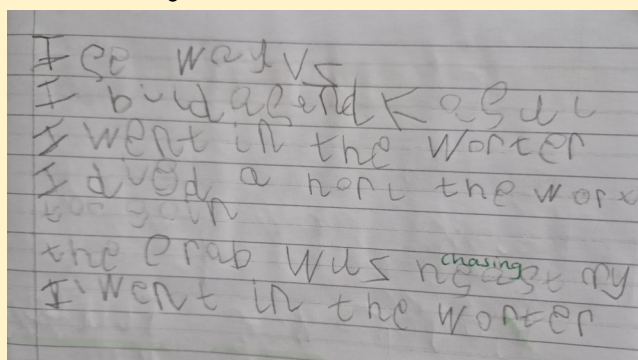 I se wayvs
I biuld a send Kasul
I went in the worter
I dived a horl the worx
the crab wus chasing my
I went in the worter